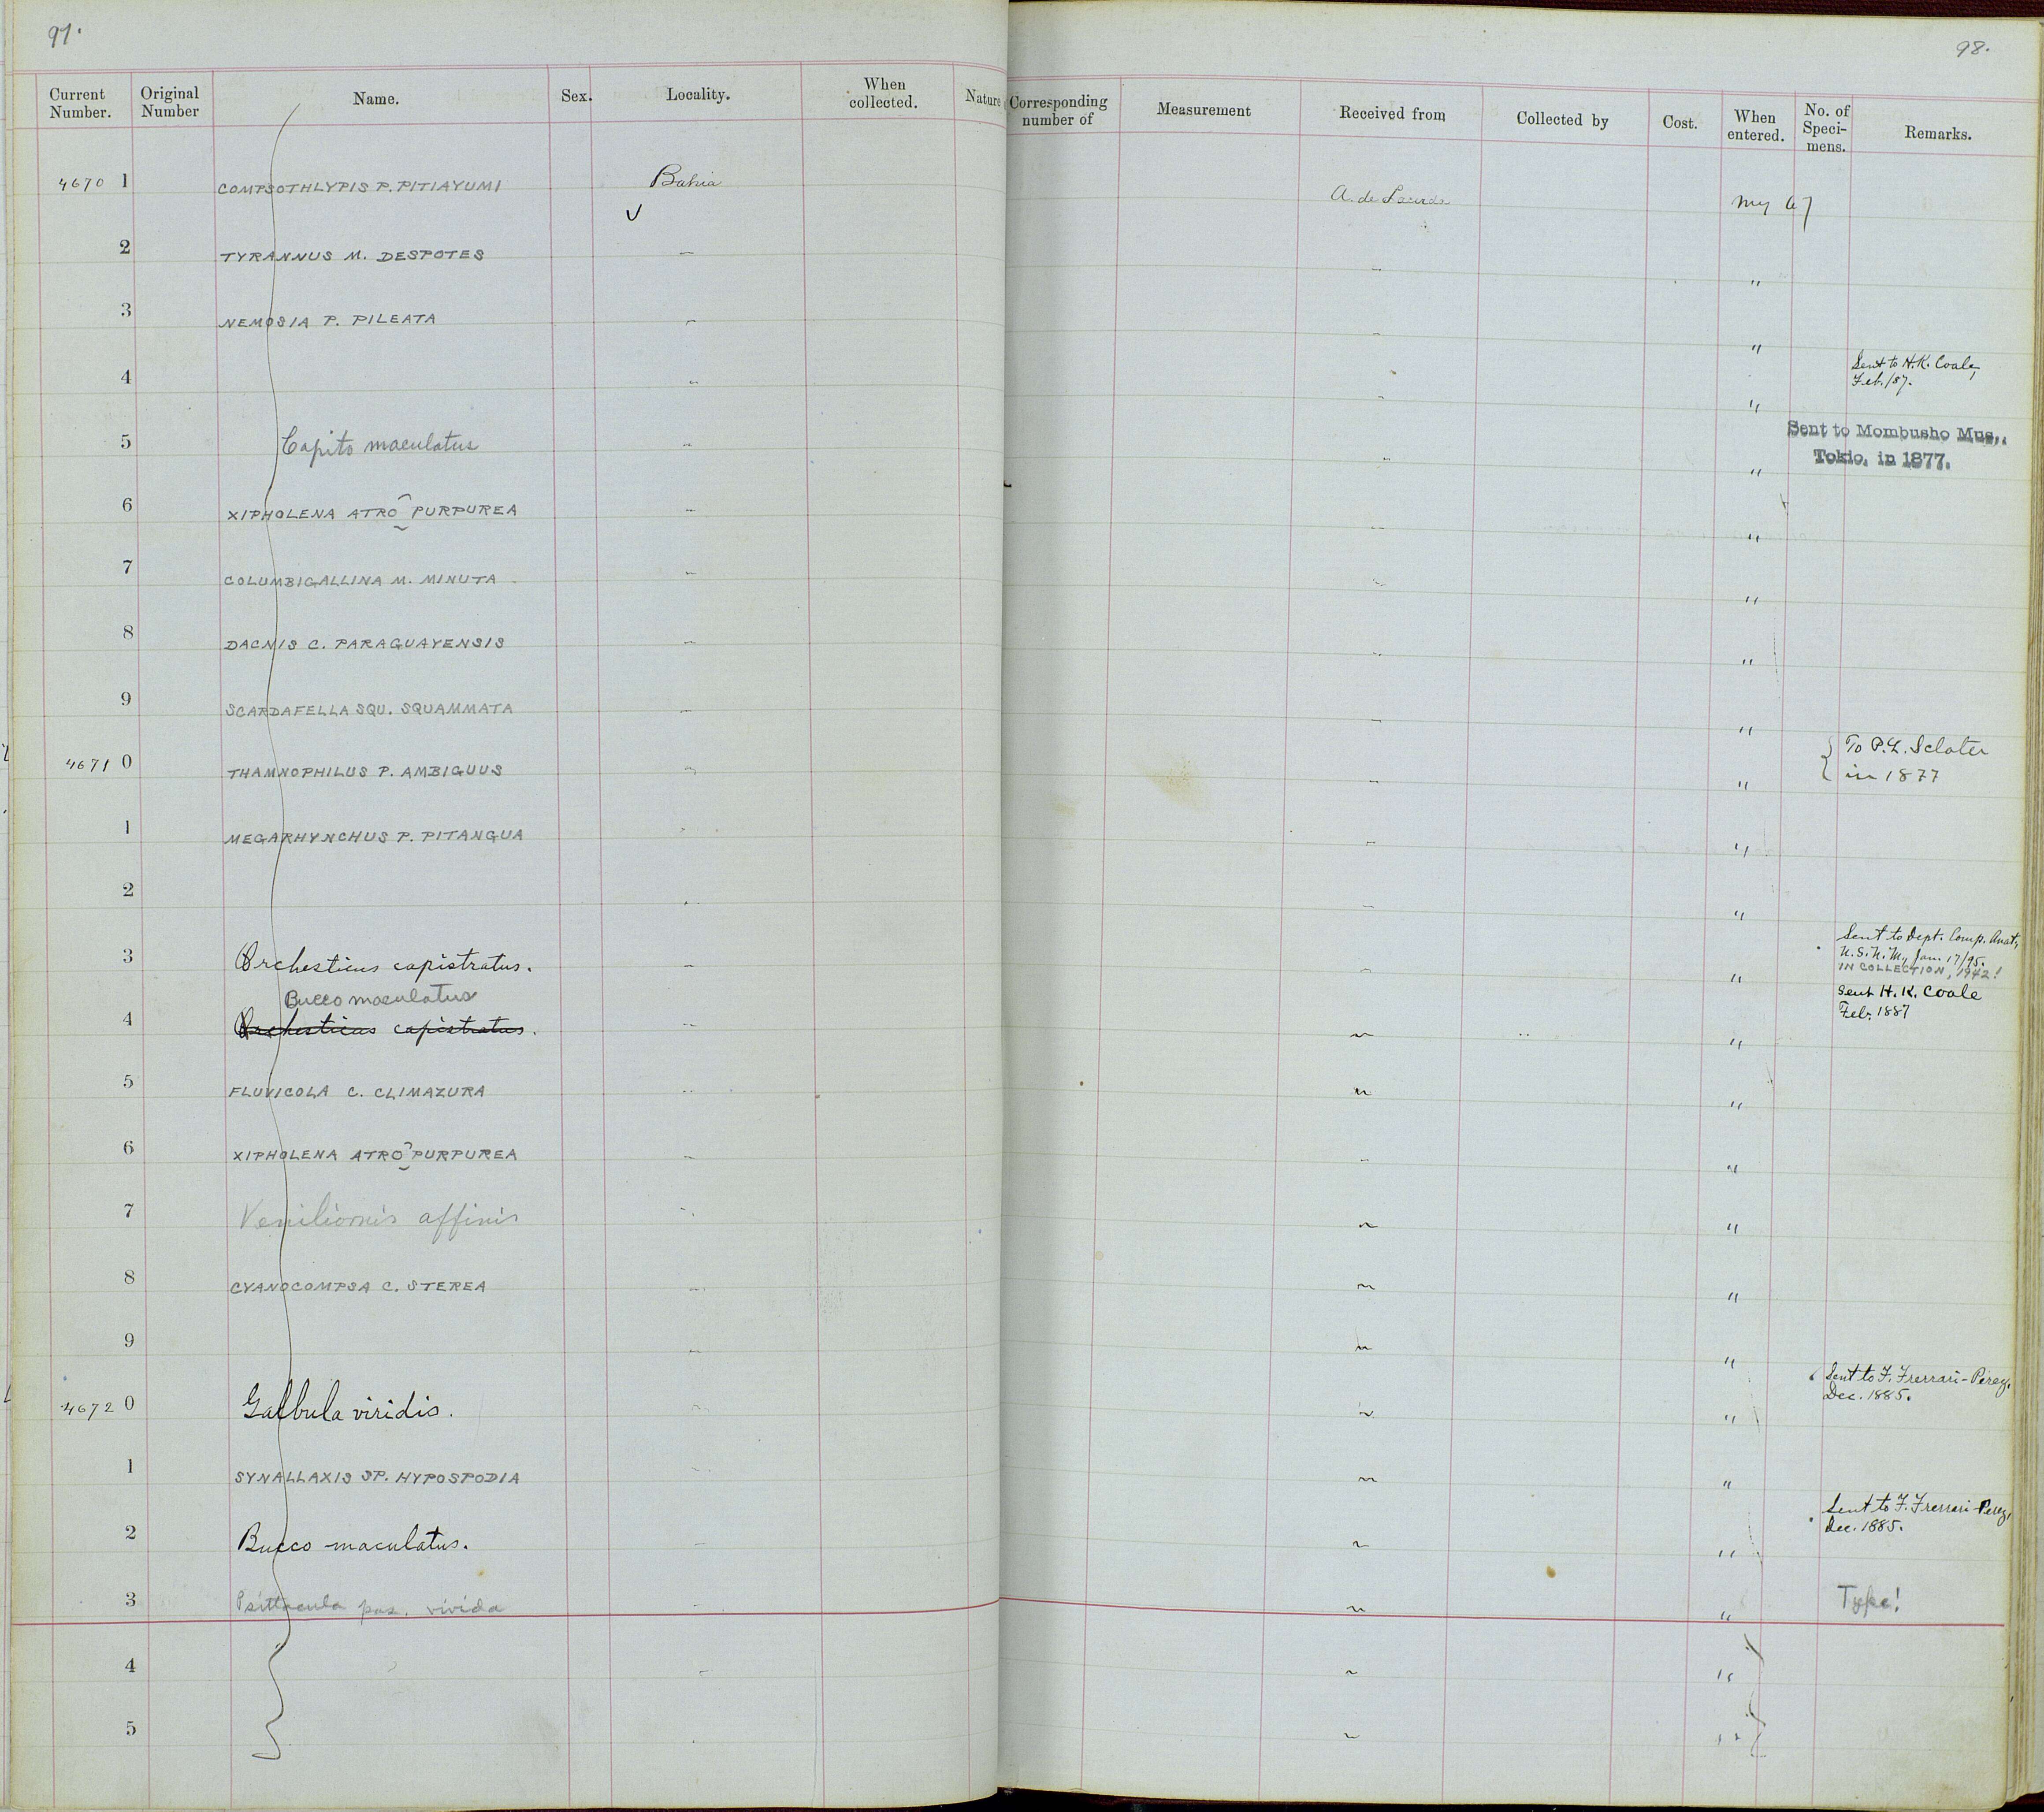 97.
98.
Current Number. Original Number Name. Sex. Locality. When collected. Nature Corresponding number of Measurement Received from Collected by Cost. When entered. No. of Speci- mens. Remarks.
4670 1 COMPSOTHLYPIS P. PITIAYUMI Bahia A. de My 67
✓
2 TYRANNUS M. DESPOTES — — "
3 NEMOSIA P. PILEATA — — "
4 — — " Sent to H.K. Coale,
Feb./87.
5 Capito maculatus — — " Sent to Mombusho Mus.,
Tokio, in 1877.
6 XIPHOLENA ATRO PURPUREA — — "
7 COLUMBIGALLINA M. MINUTA — — "
8 DACNIS C. PARAGUAYENSIS — — "
9 SCARDAFELLA SQU. SQUAMMATA — — "
4671 0 THAMNOPHILUS P. AMBIGUUS — — " { To P.L. Sclater
in 1877
1 MEGARHYNCHUS P. PITANGUA — — "
2 — — "
3 Orchesticus capistratus. — — " Sent to Dept. Comp. Anat,
U.S.N.M., Jan. 17/95.
IN COLLECTION, 1942!
Bucco maculatus
4 Orchesticus capistratus. — — " Sent H.K. Coale
Feb. 1887
5 FLUVICOLA C. CLIMAZURA — — "
6 XIPHOLENA ATRO PURPUREA — — "
7 Veniliornis affinis — — "
8 CYANOCOMPSA C. STEREA — — "
9 — — "
4672 0 Galbula viridis. — — " Sent to F. Ferrari-Perez,
Dec. 1885.
1 SYNALLAXIS SP. HYPOSPODIA — — "
2 Bucco maculatus. — — " Sent to F. Ferrari-Perez,
Dec. 1885.
3 Psittacula pas. vivida — — " Type!
4 — — "
5 — — "